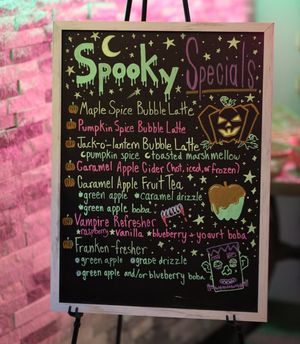 Spooky Specials
Maple Spice Bubble Latte
Pumpkin Spice Bubble Latte
Jack-o-lantern Bubble Latte
pumpkin spice toasted marshmellow
Caramel Apple Cider (hot, iced, or frozen)
Caramel Apple Fruit Tea
green apple caramel drizzle
green apple boba
Vampire Refresher
raspberry vanilla blueberry + yogurt boba
Franken-fresher
green apple grape drizzle
green apple and/or blueberry boba